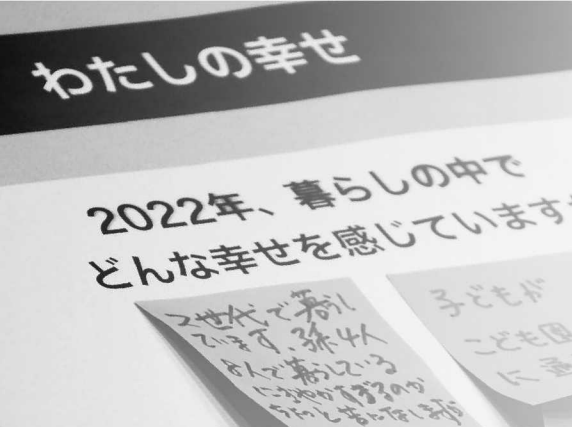 わたしの幸せ
2022年、暮らしの中で
どんな幸せを感じています
2世代で暮らし
ています。孫4人
8人で暮らしている
にぎやかすぎるのが
子どもが
こども園
に通